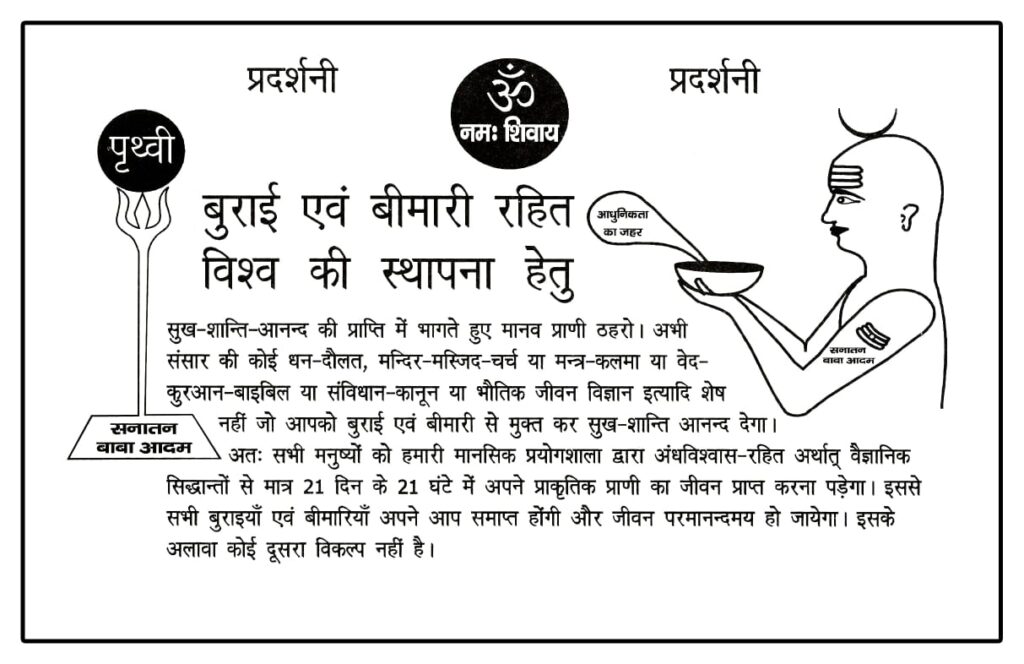 प्रदर्शनी
ॐ
नमः शिवाय
प्रदर्शनी
पृथ्वी
बुराई एवं बीमारी रहित
विश्व की स्थापना हेतु
आधुनिकता
का जहर
सुख-शान्ति-आनन्द की प्राप्ति में भागते हुए मानव प्राणी ठहरो। अभी
संसार की कोई धन-दौलत, मन्दिर-मस्जिद-चर्च या मन्त्र-कलमा या वेद-
कुरआन-बाइबिल या संविधान-कानून या भौतिक जीवन विज्ञान इत्यादि शेष
नहीं जो आपको बुराई एवं बीमारी से मुक्त कर सुख-शान्ति आनन्द देगा।
सनातन
बाबा आदम
सनातन
बाबा आदम
अतः सभी मनुष्यों को हमारी मानसिक प्रयोगशाला द्वारा अंधविश्वास-रहित अर्थात् वैज्ञानिक
सिद्धान्तों से मात्र 21 दिन के 21 घंटे में अपने प्राकृतिक प्राणी का जीवन प्राप्त करना पड़ेगा। इससे
सभी बुराइयाँ एवं बीमारियाँ अपने आप समाप्त होंगी और जीवन परमानन्दमय हो जायेगा। इसके
अलावा कोई दूसरा विकल्प नहीं है।